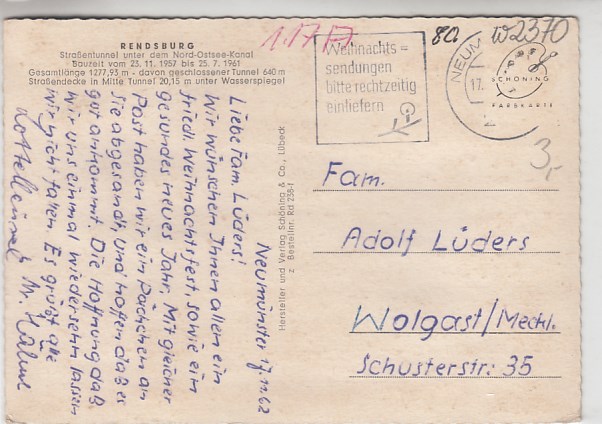 RENDSBURG
Straßentunnel unter dem Nord-Ostsee-Kanal
Bauzeit vom 23. 11. 1957 bis 25. 7. 1961
Gesamtlänge 1277,93 m - davon geschlossener Tunnel 640 m
Straßendecke in Mitte Tunnel 20,15 m unter Wasserspiegel
1.17
80
W2370
Weihnachts=
sendungen
bitte rechtzeitig
einliefern
NEUM
17.
SCHÖNING
FARBKARTE
3,-
Neumünster 17.11.62
Liebe Fam. Lüders!
Wir wünschen Ihnen allen ein
friedl. Weihnachtsfest, sowie ein
gesundes neues Jahr. Mit gleicher
Post haben wir ein Päckchen an
Sie abgesandt, und hoffen daß es
gut ankommt. Die Hoffnung daß
wir uns einmal wiedersehn lassen
wir nicht fallen. Es grüßt alle
M.
Hersteller und Verlag Schöning & Co., Lübeck
Bestellnr. Rd 235-f
Fam.
Adolf Lüders
Wolgast/Meckl.
Schusterstr. 35